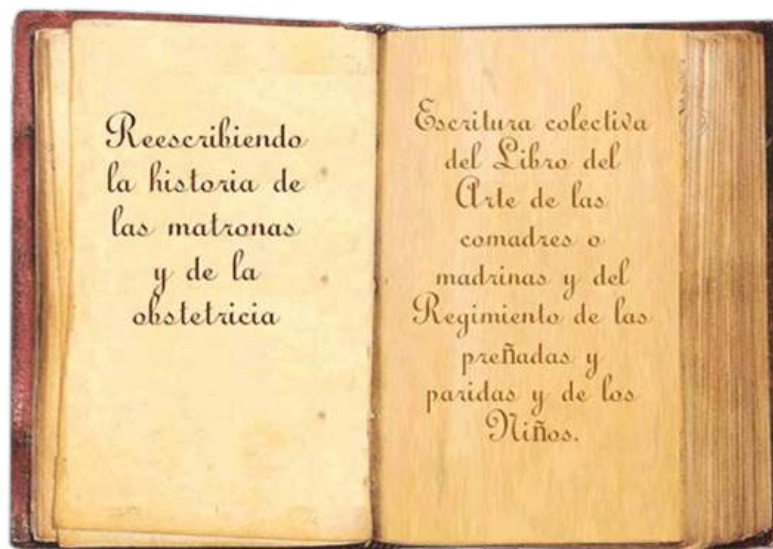 Reescribiendo
la historia de
las matronas
y de la
obstetricia
Escritura colectiva
del Libro del
Arte de las
comadres o
madrinas y del
Regimiento de las
preñadas y
paridas y de los
Niños.